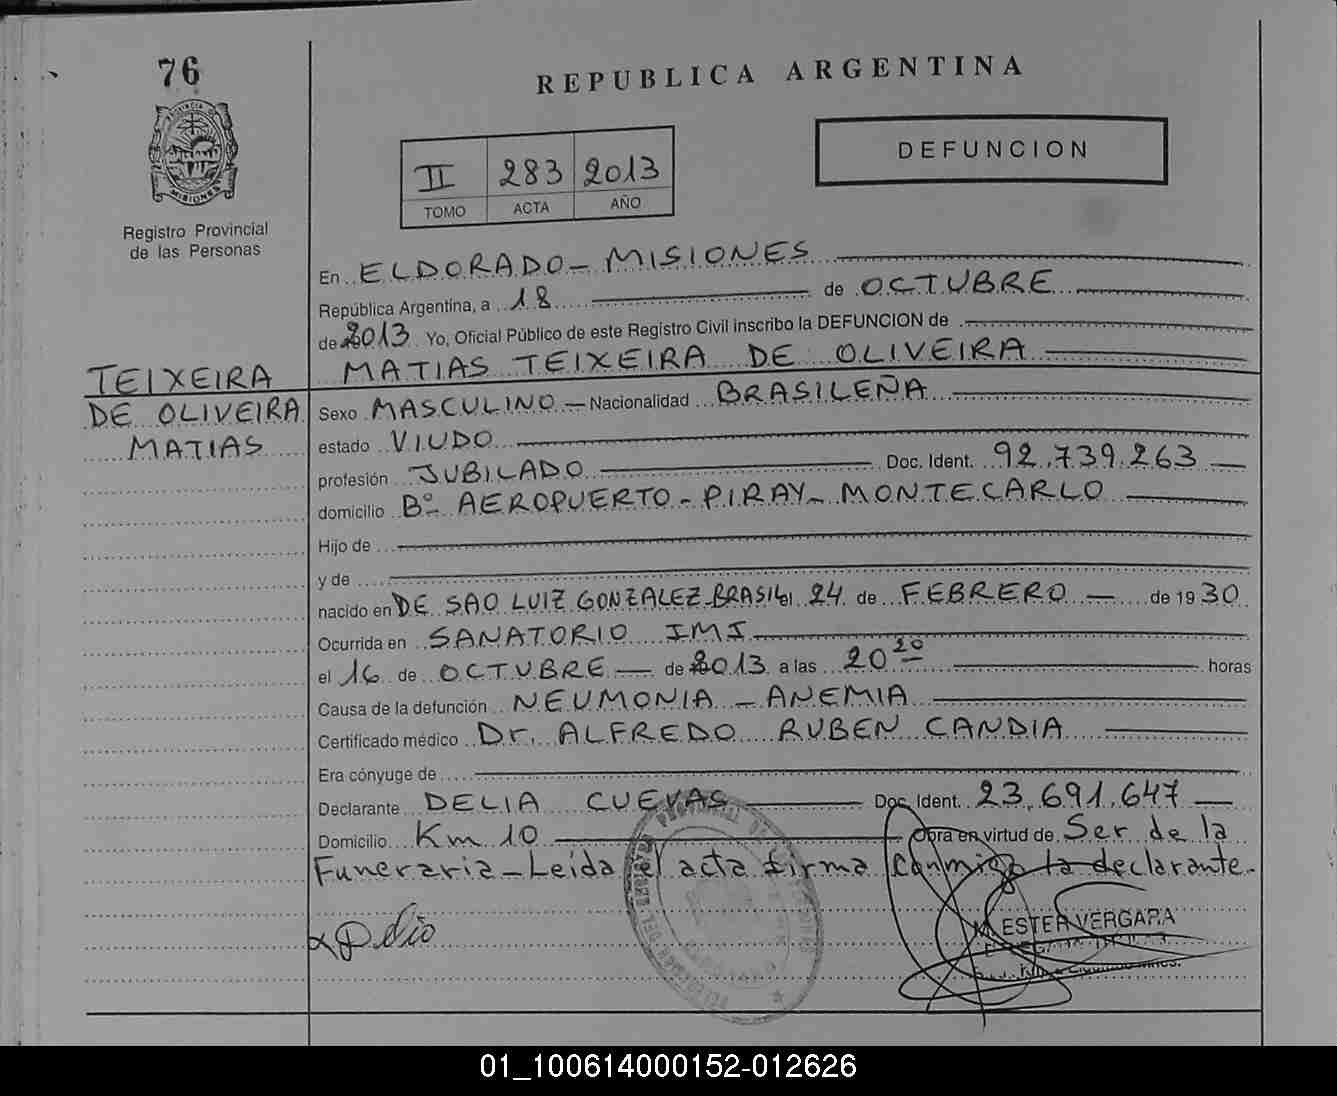 76
REPUBLICA ARGENTINA
DEFUNCION
II 283 2013
TOMO ACTA AÑO
MISIONES
Registro Provincial
de las Personas
En ELDORADO - MISIONES
República Argentina, a 18 de OCTUBRE
de 2013 Yo, Oficial Público de este Registro Civil inscribo la DEFUNCION de
MATIAS TEIXEIRA DE OLIVEIRA
TEIXEIRA
DE OLIVEIRA
MATIAS
Sexo MASCULINO - Nacionalidad BRASILEÑA
estado VIUDO
profesión JUBILADO Doc. Ident. 92.739.263
domicilio Bº AEROPUERTO - PIRAY - MONTECARLO
Hijo de
y de
nacido en DE SAO LUIZ GONZALEZ-BRASIL el 24 de FEBRERO de 1930
Ocurrida en SANATORIO IMI
el 16 de OCTUBRE de 2013 a las 20 20 horas
Causa de la defunción NEUMONIA - ANEMIA
Certificado médico Dr. ALFREDO RUBEN CANDIA
Era cónyuge de
Declarante DELIA CUEVAS Doc. Ident. 23.691.647
Domicilio Km 10 Obra en virtud de Ser de la
Funeraria - Leída el acta firma conmigo la declarante.
M. ESTER VERGARA
01_100614000152-012626